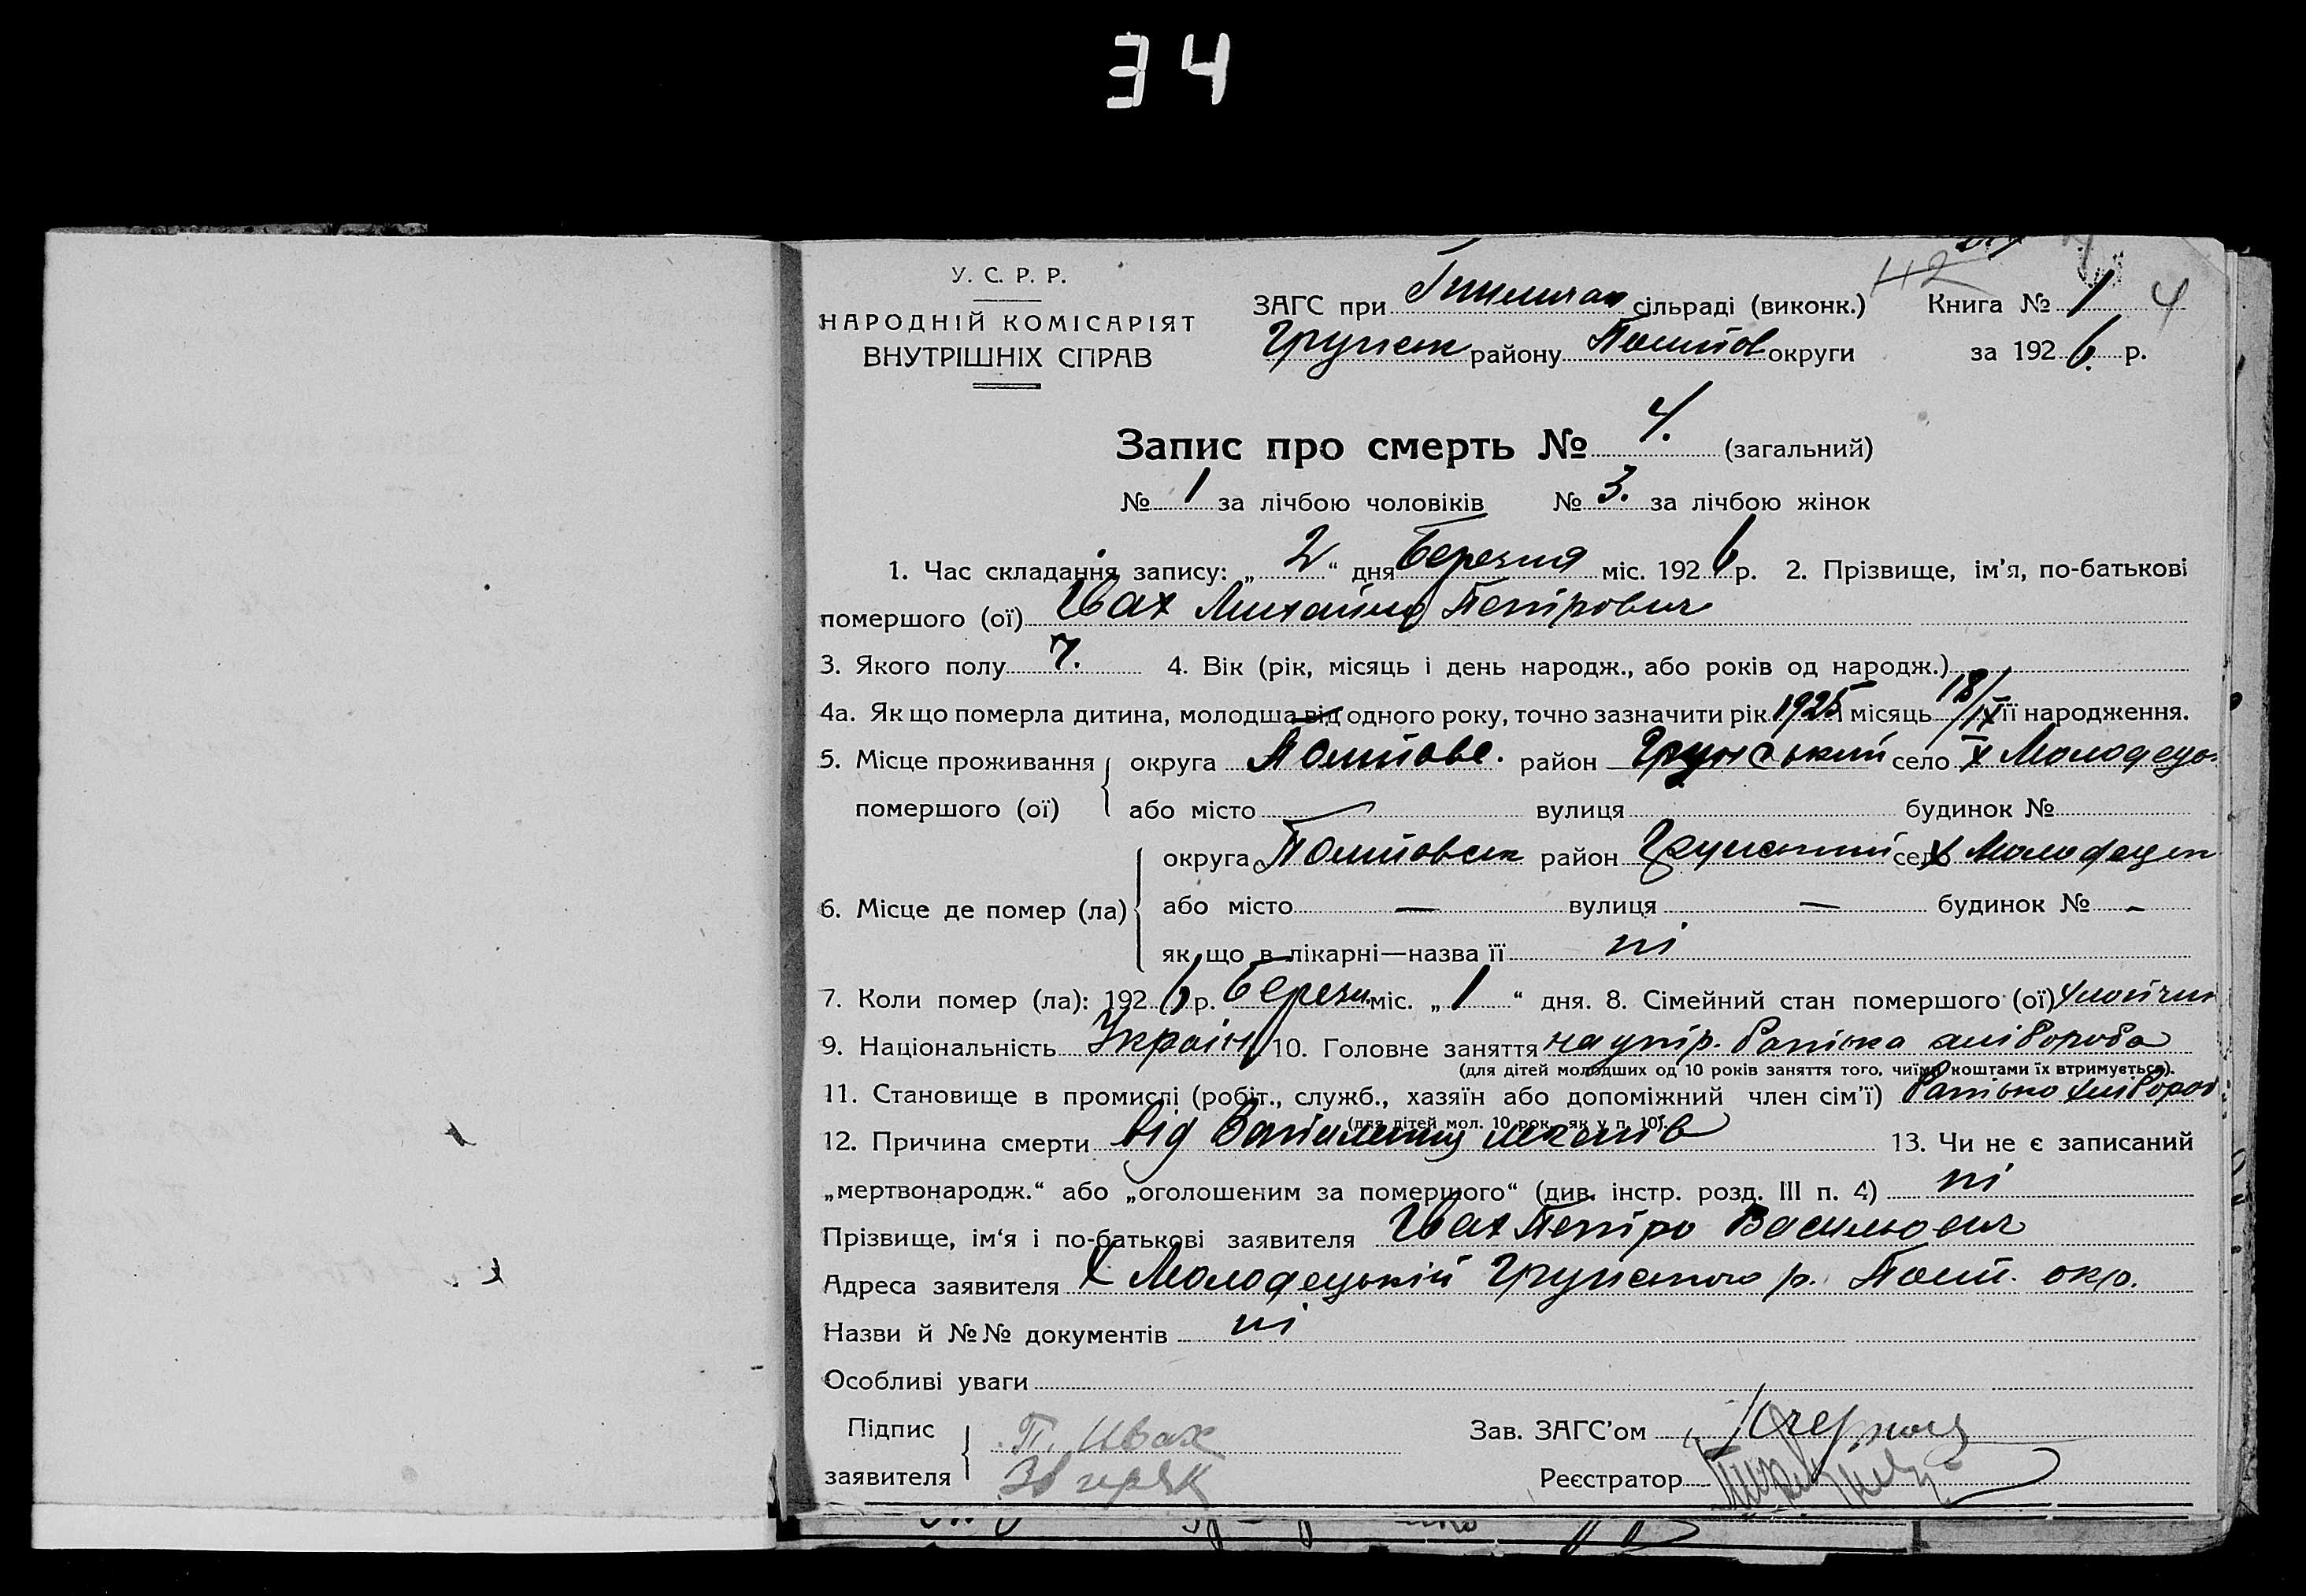 34
У. С. Р. Р.
НАРОДНІЙ КОМІСАРІЯТ
ВНУТРІШНІХ СПРАВ
ЗАГС при сільраді (виконк.)
42
Книга № 1 4
Грунськ району Полтов округи
за 1926 р.
Запис про смерть № 4. (загальний)
№ 1 за лічбою чоловіків № 3. за лічбою жінок
1. Час складання запису: „ 2 “ дня березня міс. 1926 р. 2. Прізвище, ім’я, по-батькові
помершого (ої) Івах Михайло Петрович
3. Якого полу Ч. 4. Вік (рік, місяць і день народж., або років од народж.)
4а. Як що померла дитина, молодша від одного року, точно зазначити рік 1925 місяць 18/IX її народження.
5. Місце проживання округа Полтове. район Грунський село х Молодець
помершого (ої) або місто вулиця будинок №
округа Полтовськ район Грунський село х Молодецьк
6. Місце де помер (ла) або місто — вулиця — будинок № -
як що в лікарні—назва її ні
7. Коли помер (ла): 1926 р. березн. міс. „ 1 “ дня. 8. Сімейний стан помершого (ої)
9. Національність Україн 10. Головне заняття на утр. батька хлібороба
(для дітей молодших од 10 років заняття того, чиїми коштами їх втримується).
11. Становище в промислі (робіт., служб., хазяїн або допоміжний член сім’ї) батько хлібороб
(для дітей мол. 10 рок. як у п. 10).
12. Причина смерти від Запалення легенів 13. Чи не є записаний
„мертвонародж.“ або „оголошеним за помершого“ (див. інстр. розд. III п. 4) ні
Прізвище, ім‘я і по-батькові заявителя Івах Петро Васильович
Адреса заявителя х Молодецький Грунського р. Полт. окр.
Назви й №№ документів ні
Особливі уваги
Підпис П. Ивах
Зав. ЗАГС’ом
заявителя
Реєстратор